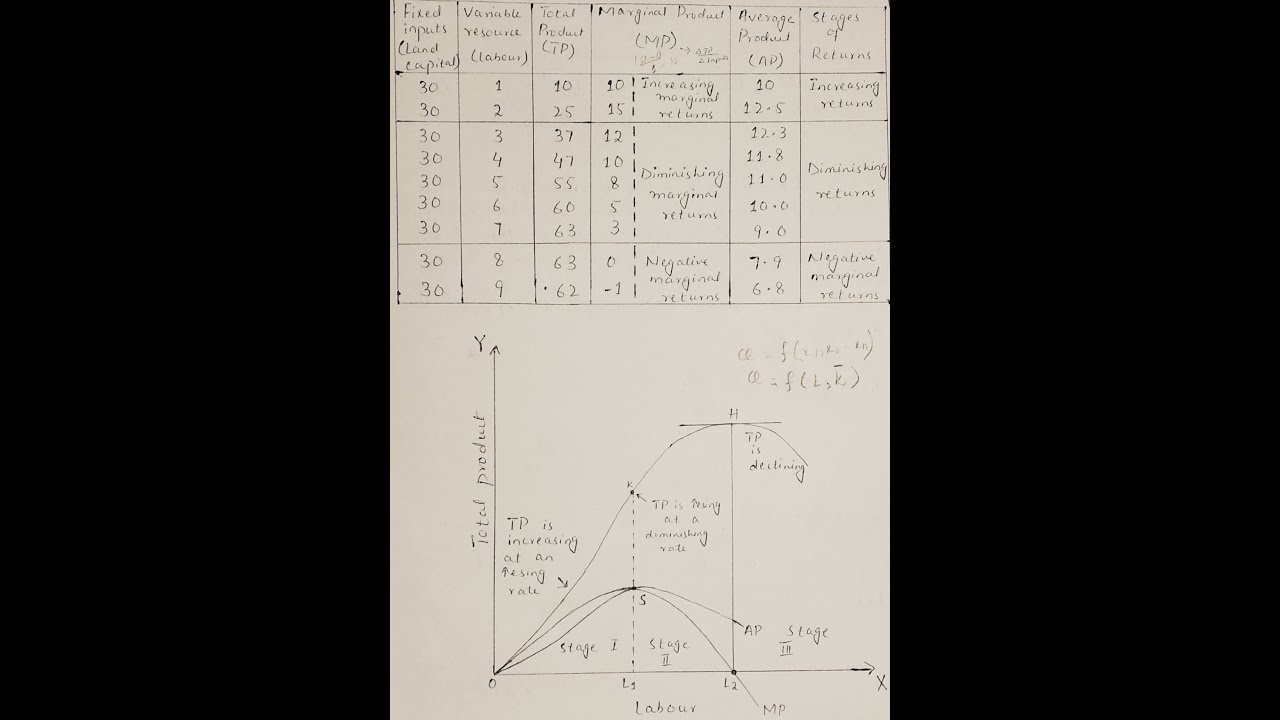 Fixed inputs (Land capital) Variable resource (labour) Total Product (TP) Marginal Product (MP) → ΔTP/Δinput Average Product (AP) Stages of Returns
30 1 10 10 Increasing marginal returns 10 Increasing returns
30 2 25 15 12.5
30 3 37 12 Diminishing marginal returns 12.3 Diminishing returns
30 4 47 10 11.8
30 5 55 8 11.0
30 6 60 5 10.0
30 7 63 3 9.0
30 8 63 0 Negative marginal returns 7.9 Negative marginal returns
30 9 62 -1 6.8
Y
Q = f(L, K̄)
H
TP
is
declining
Total product
K
TP is ↑esing
at a
diminishing
rate
TP is
increasing
at an
↑esing
rate
S
AP
Stage I
Stage
II
Stage
III
O
L1
L2
X
Labour
MP